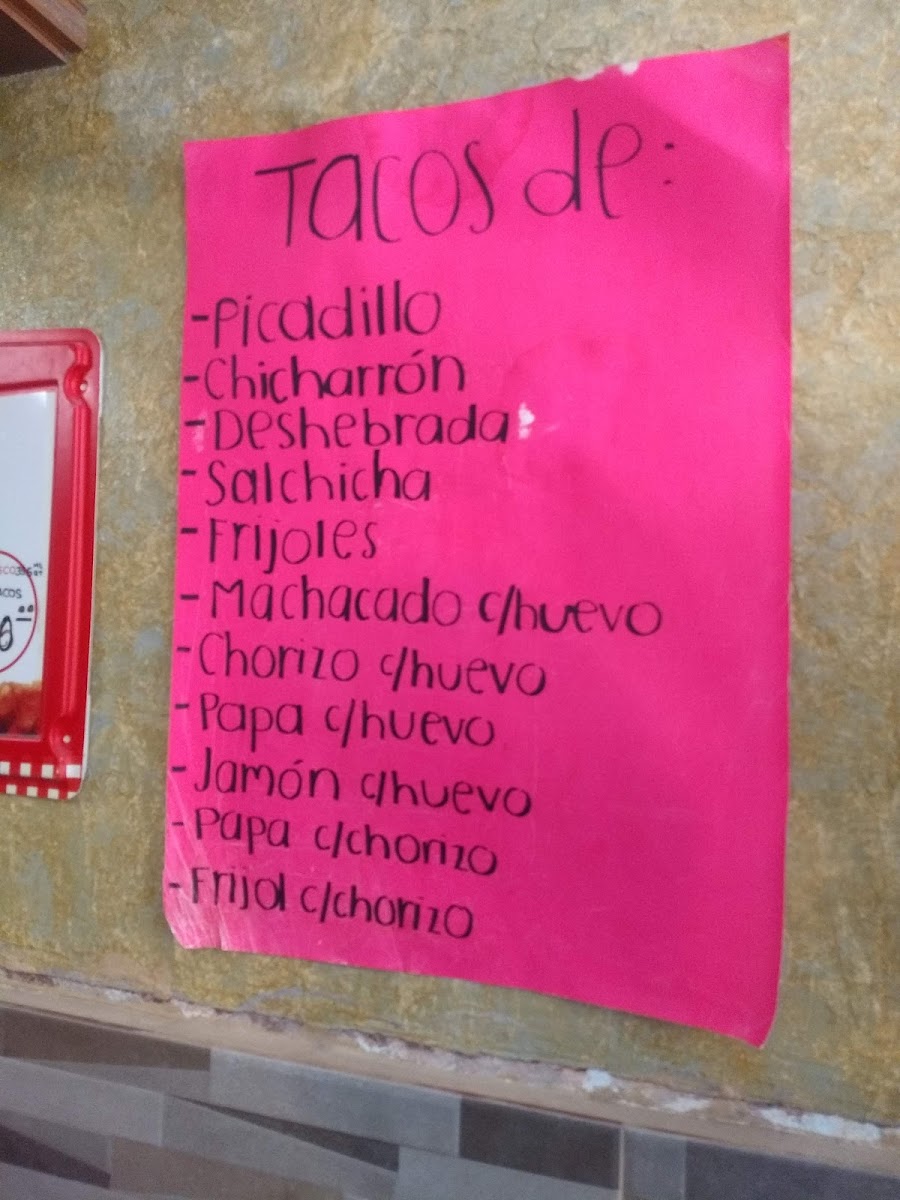 Tacos de:
-Picadillo
-Chicharrón
-Deshebrada
-Salchicha
-Frijoles
-Machacado c/huevo
-Chorizo c/huevo
-Papa c/huevo
-Jamón c/huevo
-Papa c/chorizo
-Frijol c/chorizo